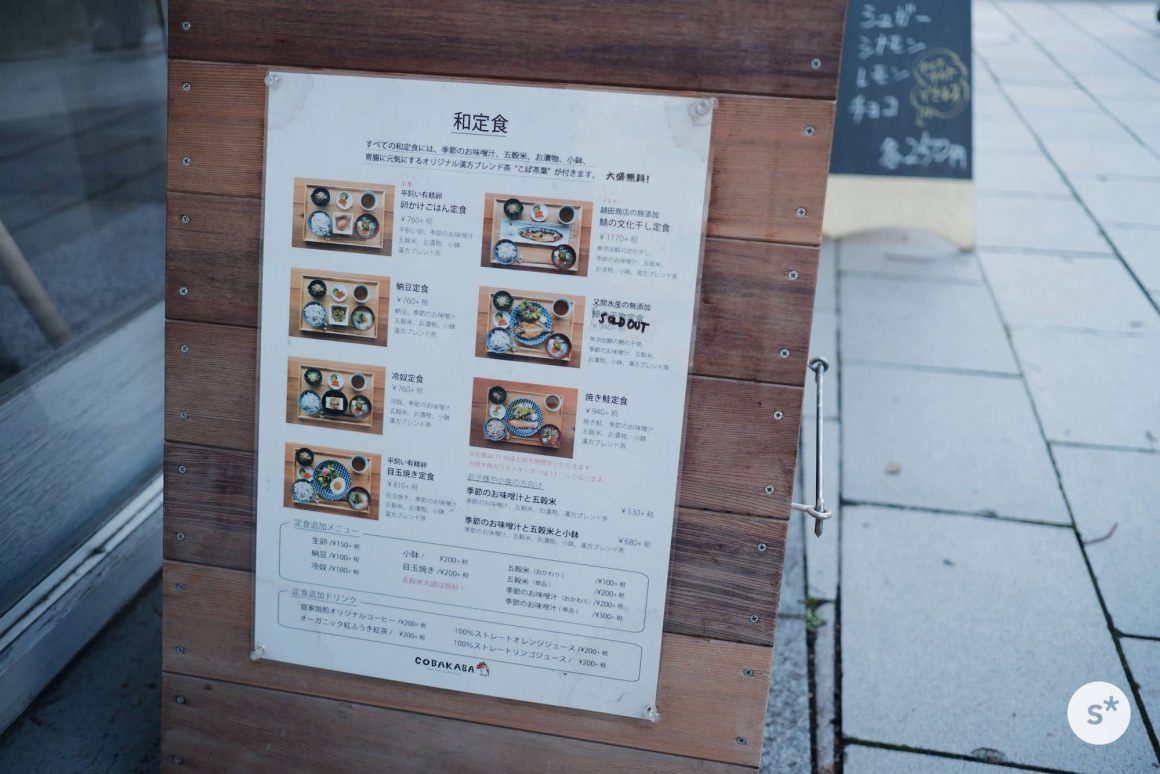 和定食
すべての和定食には、季節のお味噌汁、五穀米、お漬物、小鉢、
胃腸に元気にするオリジナル漢方ブレンド茶 “こば茶葉” が付きます。
大盛無料!
平飼い有精卵
卵かけごはん定食
¥760+ 税
平飼い卵、季節のお味噌汁
五穀米、お漬物、小鉢
漢方ブレンド茶
納豆定食
¥760+ 税
納豆、季節のお味噌汁
五穀米、お漬物、小鉢
漢方ブレンド茶
冷奴定食
¥760+ 税
冷奴、季節のお味噌汁
五穀米、お漬物、小鉢
漢方ブレンド茶
平飼い有精卵
目玉焼き定食
¥810+ 税
目玉焼き、季節のお味噌汁
五穀米、お漬物、小鉢
漢方ブレンド茶
越田商店の無添加
鯖の文化干し定食
¥1170+ 税
無添加鯖の文化干し、
季節のお味噌汁、五穀米、
お漬物、小鉢、漢方ブレンド茶
又間水産の無添加
SOLD OUT
季節のお味噌汁、五穀米、
お漬物、小鉢、漢方ブレンド茶
焼き鮭定食
¥940+ 税
焼き鮭、季節のお味噌汁
五穀米、お漬物、小鉢
漢方ブレンド茶
お子様や小食の方向け
季節のお味噌汁と五穀米
季節のお味噌汁、五穀米、お漬物、漢方ブレンド茶
¥530+ 税
季節のお味噌汁と五穀米と小鉢
季節のお味噌汁、五穀米、お漬物、小鉢、漢方ブレンド茶
¥680+ 税
定食追加メニュー
生卵 /¥150+ 税
納豆 /¥100+ 税
冷奴 /¥100+ 税
小鉢 / ¥200+ 税
目玉焼き /¥200+ 税
五穀米大盛は無料!
五穀米(おかわり) /¥100+ 税
五穀米(単品) /¥200+ 税
季節のお味噌汁(おかわり)/¥200+ 税
季節のお味噌汁(単品) /¥300+ 税
定食追加ドリンク
自家焙煎オリジナルコーヒー /¥200+ 税
オーガニック紅ふうき紅茶 / ¥200+ 税
100%ストレートオレンジジュース /¥200+ 税
100%ストレートリンゴジュース / ¥200+ 税
COBAKABA
シュガー
シナモン
レモン
チョコ
各250円
s*